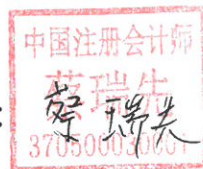 中国注册会计师
蔡瑞先
: 蔡瑞先
370500030001